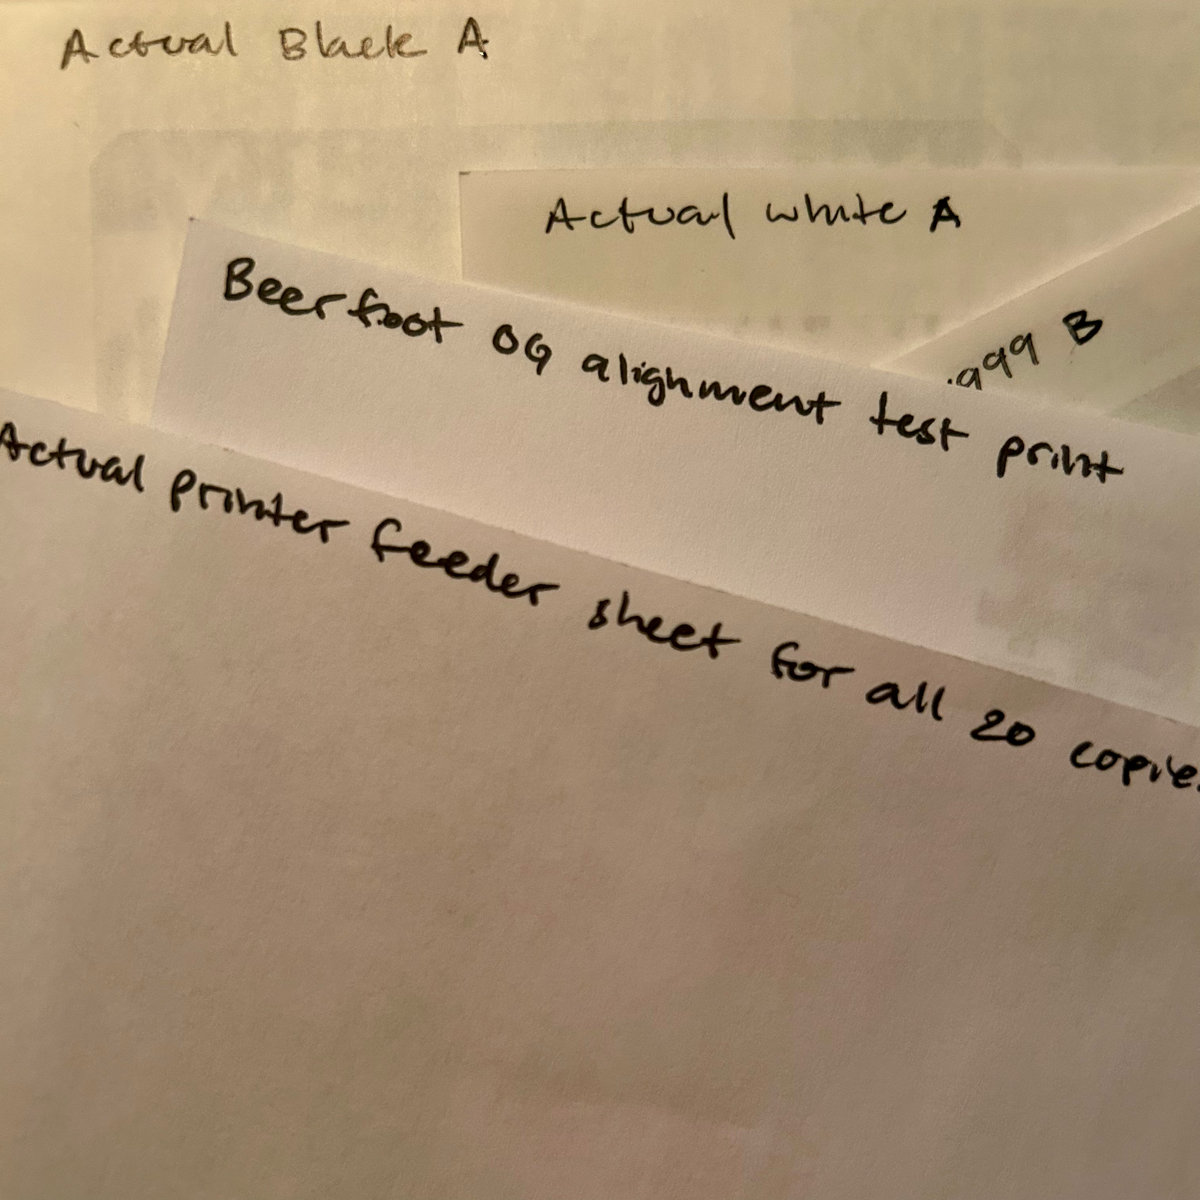 Actual Black A
Actual white A
.999 B
Beerfoot OG alignment test print
Actual printer feeder sheet for all 20 copies